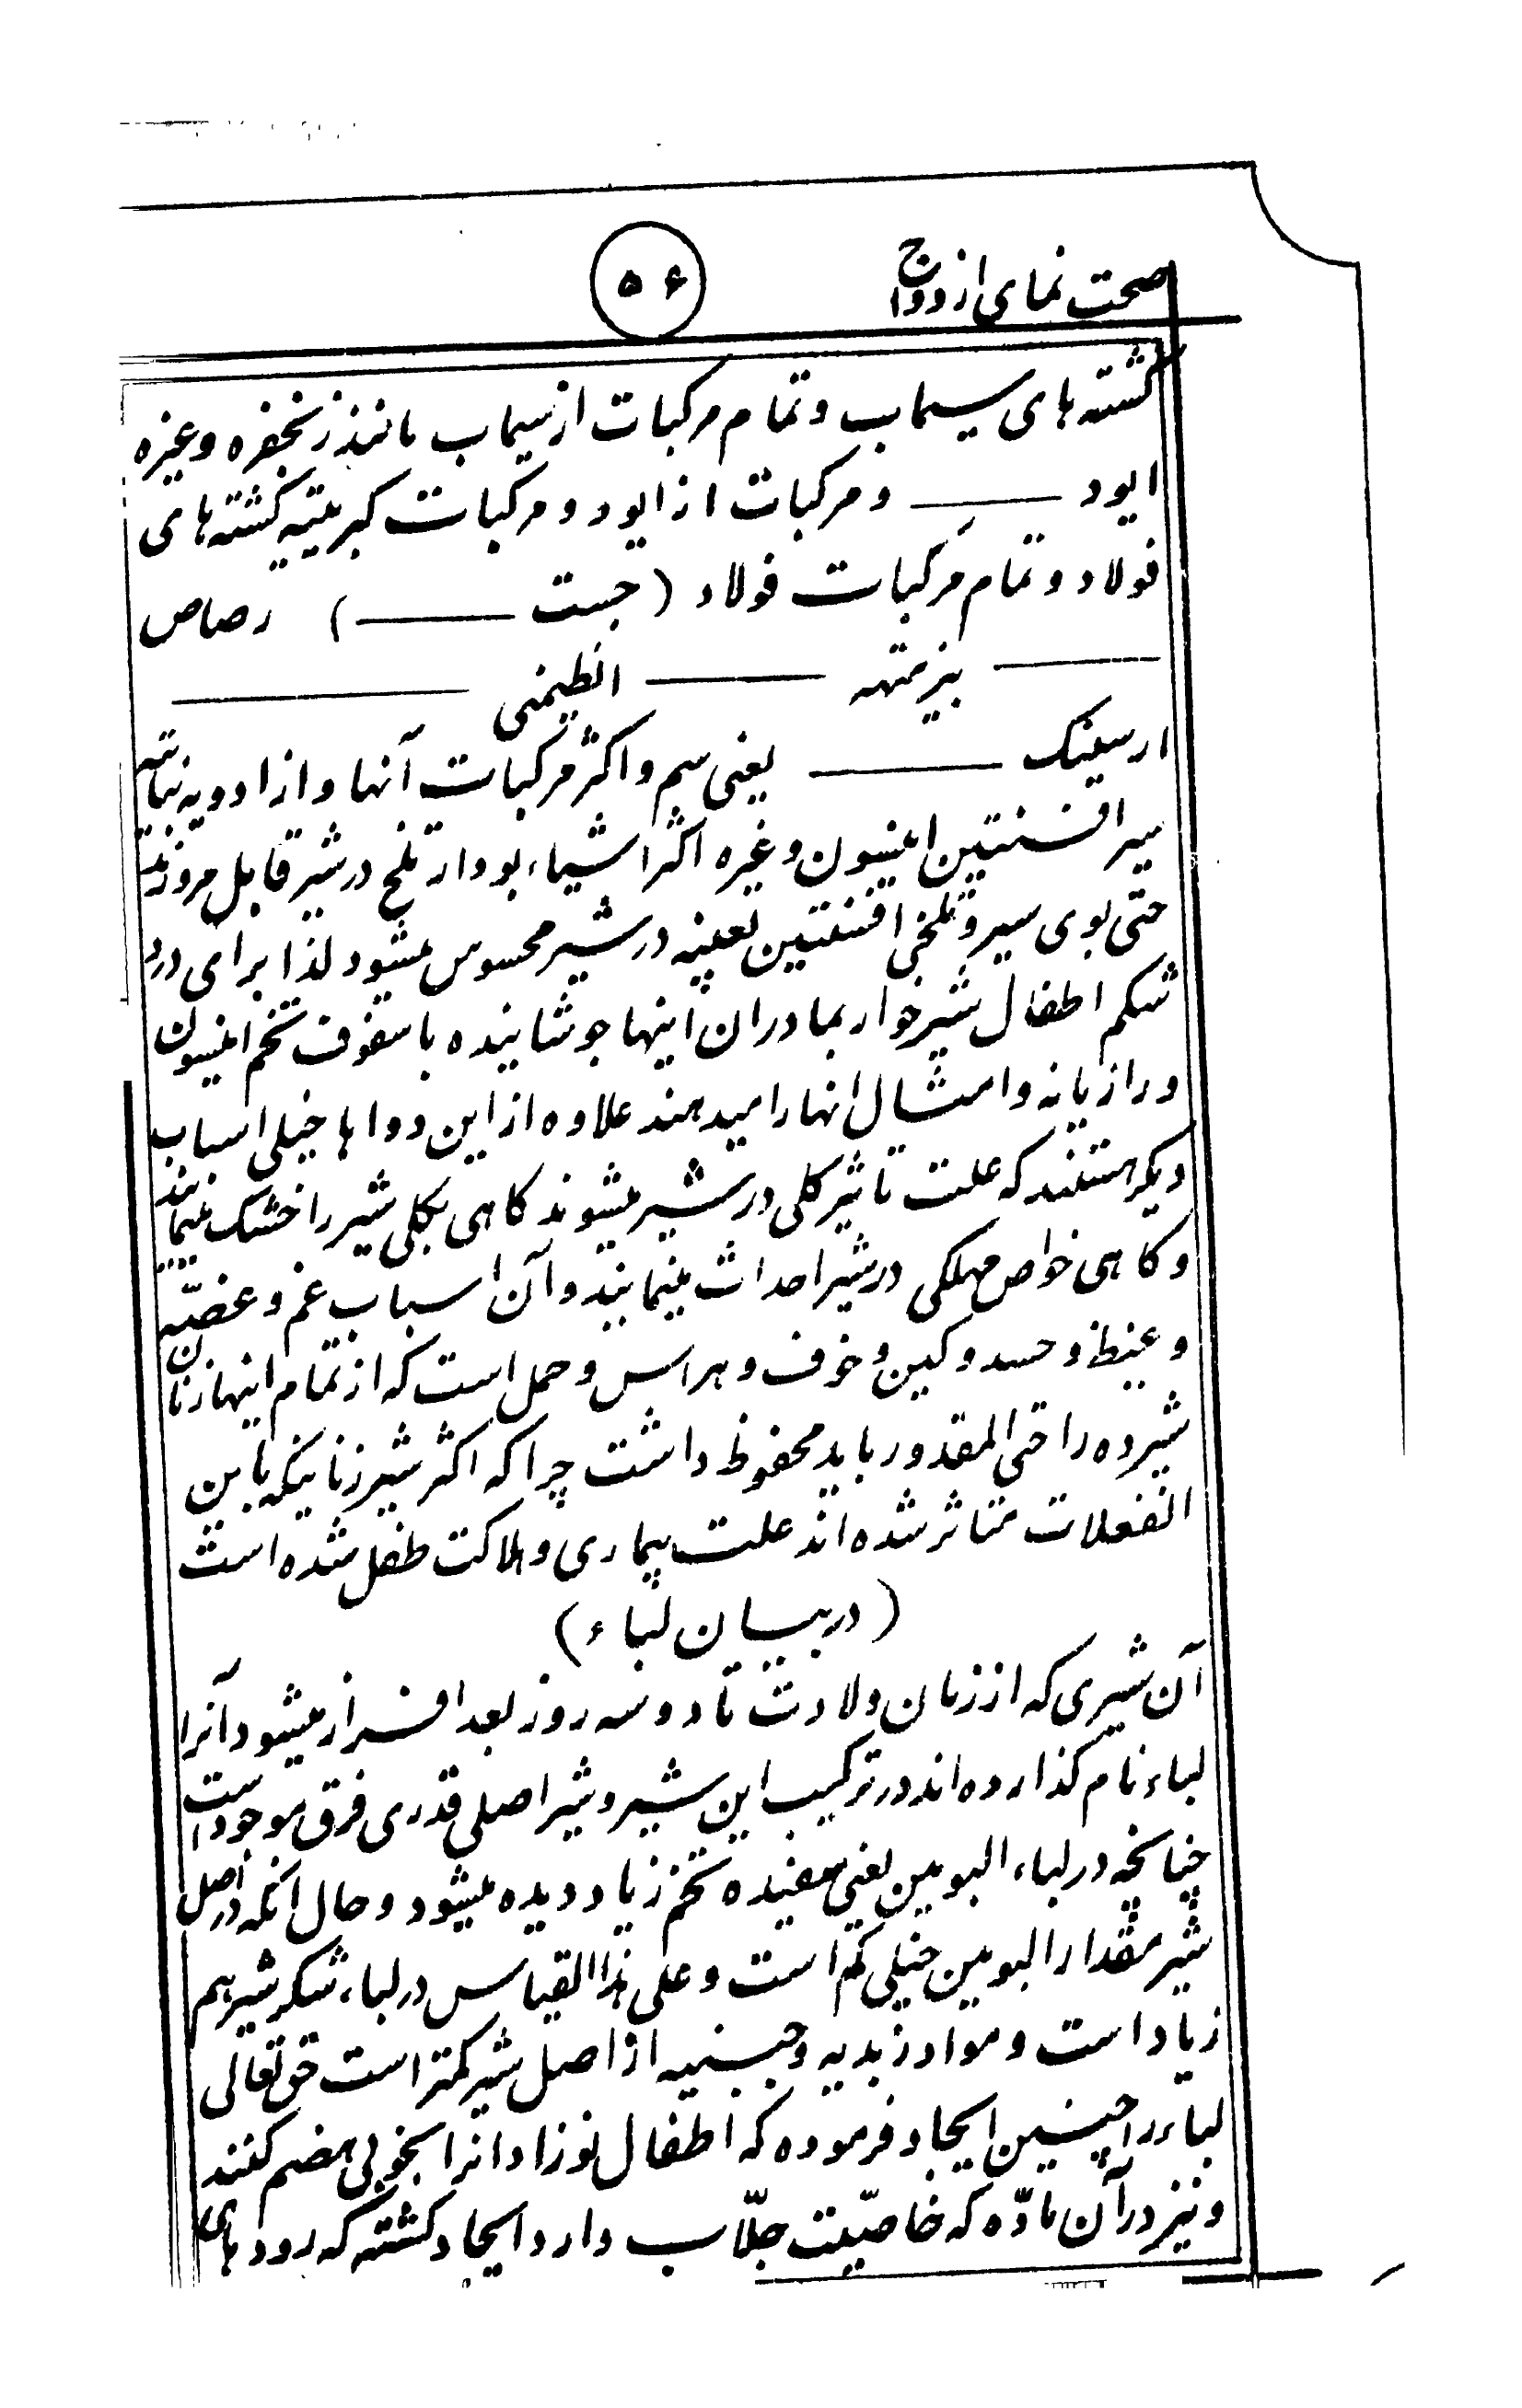 صحت نمای ازدواج
۵۶
کشته‌های سیماب و تمام مرکبات از سیماب مانند زنجفره و غیره
ایود ——— و مرکبات از ایود و مرکبات کبریتیه کشته‌های
فولاد و تمام مرکبات فولاد (جست ———) رصاص
——— بیزمته ——— انطیمنی ———
ارسینک ——— یعنی سم و اکثر مرکبات آنها و از ادویه نباتیه
سیر افسنتین انیسون و غیره اکثر اشیاء بودار تلخ در شیر قابل مروزند
حتی بوی سیر و تلخی افسنتین بعینه در شیر محسوس میشود لذا برای درد
شکم اطفال شیرخوار بمادران اینها جوشاینده یا سفوف تخم انیسون
و رازیانه و امثال انها را میدهند علاوه از این دواها خیلی اسباب
دیکر هستند که علت تاثیر کلی در شیر میشوند کاهی بکلی شیر را خشک مینمایند
و کاهی خواص مهلکی در شیر احداث مینمایند و آن اسباب غم و غصّه
و غیظ و حسد و کین و خوف و هراس و حمل است که از تمام اینها زنان
شیرده را حتی المقدور باید محفوظ داشت چرا که اکثر شیر زنانیکه باین
انفعلات متاثر شده‌اند علت بیماری و هلاکت طفل شده است
(در بیان لباء)
آن شیری که از زمان ولادت تا دو سه روز بعد افراز میشود آنرا
لباء نام کذارده‌اند در ترکیب این شیر و شیر اصلی قدری فرق موجود است
چنانچه در لباء البومین یعنی سفیده تخم زیاد دیده میشود و حال انکه در اصل
شیر مقدار البومین خیلی کم است و علی هذا القیاس در لباء شکر شیر هم
زیاد است و مواد زبدیه و جبنیه از اصل شیر کمتر است حق تعالی
لباء را چنین ایجاد فرموده که اطفال نوزاد انرا بخوبی هضم کنند
و نیز در آن مادّه که خاصیّت جلّاب دارد ایجاد کشته که رودهای